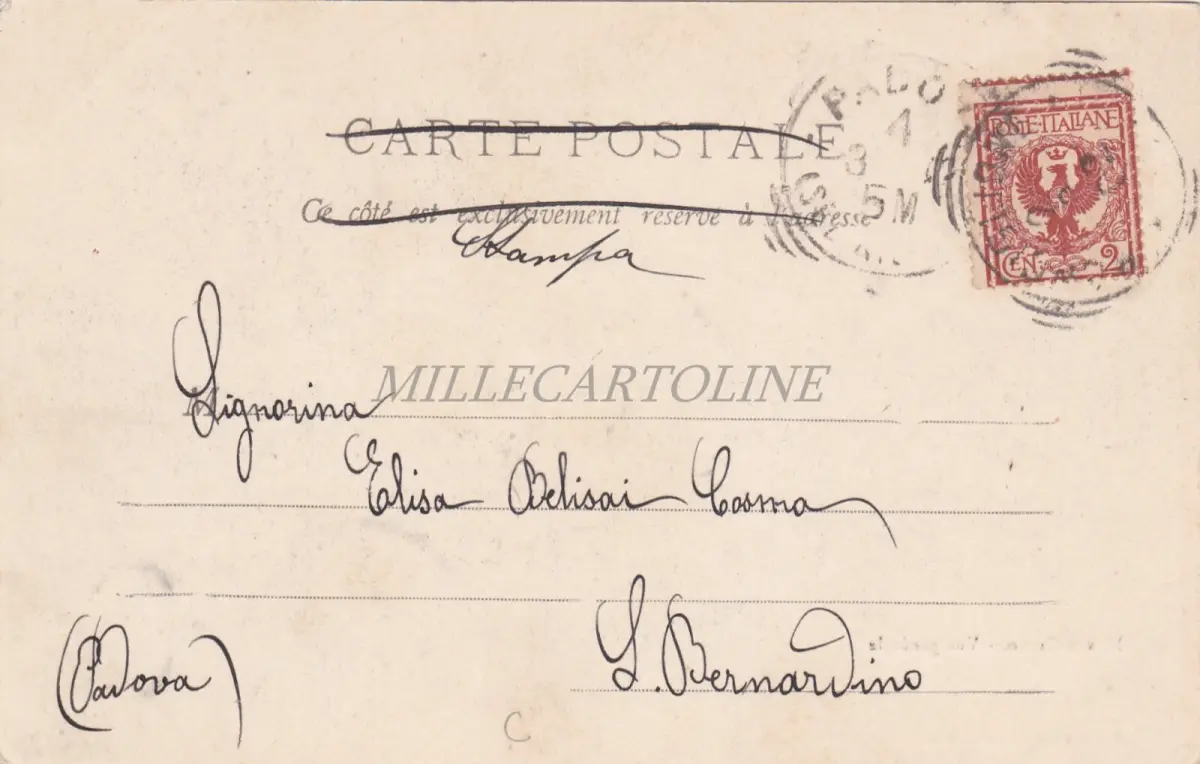 CARTE POSTALE
Ce côté est exclusivement réservé à l'adresse
Stampa
POSTE·ITALIANE
CEN. 2
5 M
MILLECARTOLINE
Signorina
Elisa Belisai Cosma
S. Bernardino
(Padova)
C